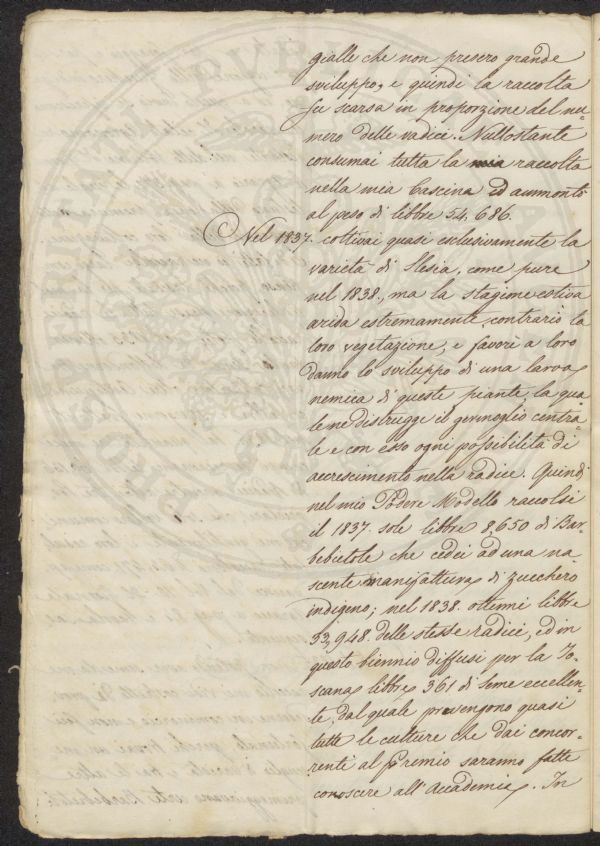 gialle che non presero grande
sviluppo, e quindi la raccolta
fu scarsa in proporzione del nu-
mero delle radici. Nullostante
consumai tutta la mia raccolta
nella mia Cascina ed aumontò
al peso di libbre 54,686.
Nel 1837. coltivai quasi esclusivamente la
varietà di Slesia, come pure
nel 1838., ma la stagione estiva
arida estremamente contrariò la
loro vegetazione, e favorì a loro
danno lo sviluppo di una larva
nemica di queste piante, la qua-
le ne distrugge il germoglio centra-
le e con esso ogni possibilità di
accrescimento nella radice. Quindi
nel mio Podere Modello raccolsi
il 1837. sole libbre 8,650 di Bar-
babietole che cedei ad una na-
scente manifattura di zucchero
indigeno; nel 1838. ottenni libbre
33,948. delle stesse radici, ed in
questo biennio diffusi per la To-
scana libbre 361 di seme eccellen-
te, dal quale provengono quasi
tutte le culture che dai concor-
renti al Premio saranno fatte
conoscere all'Accademia. In